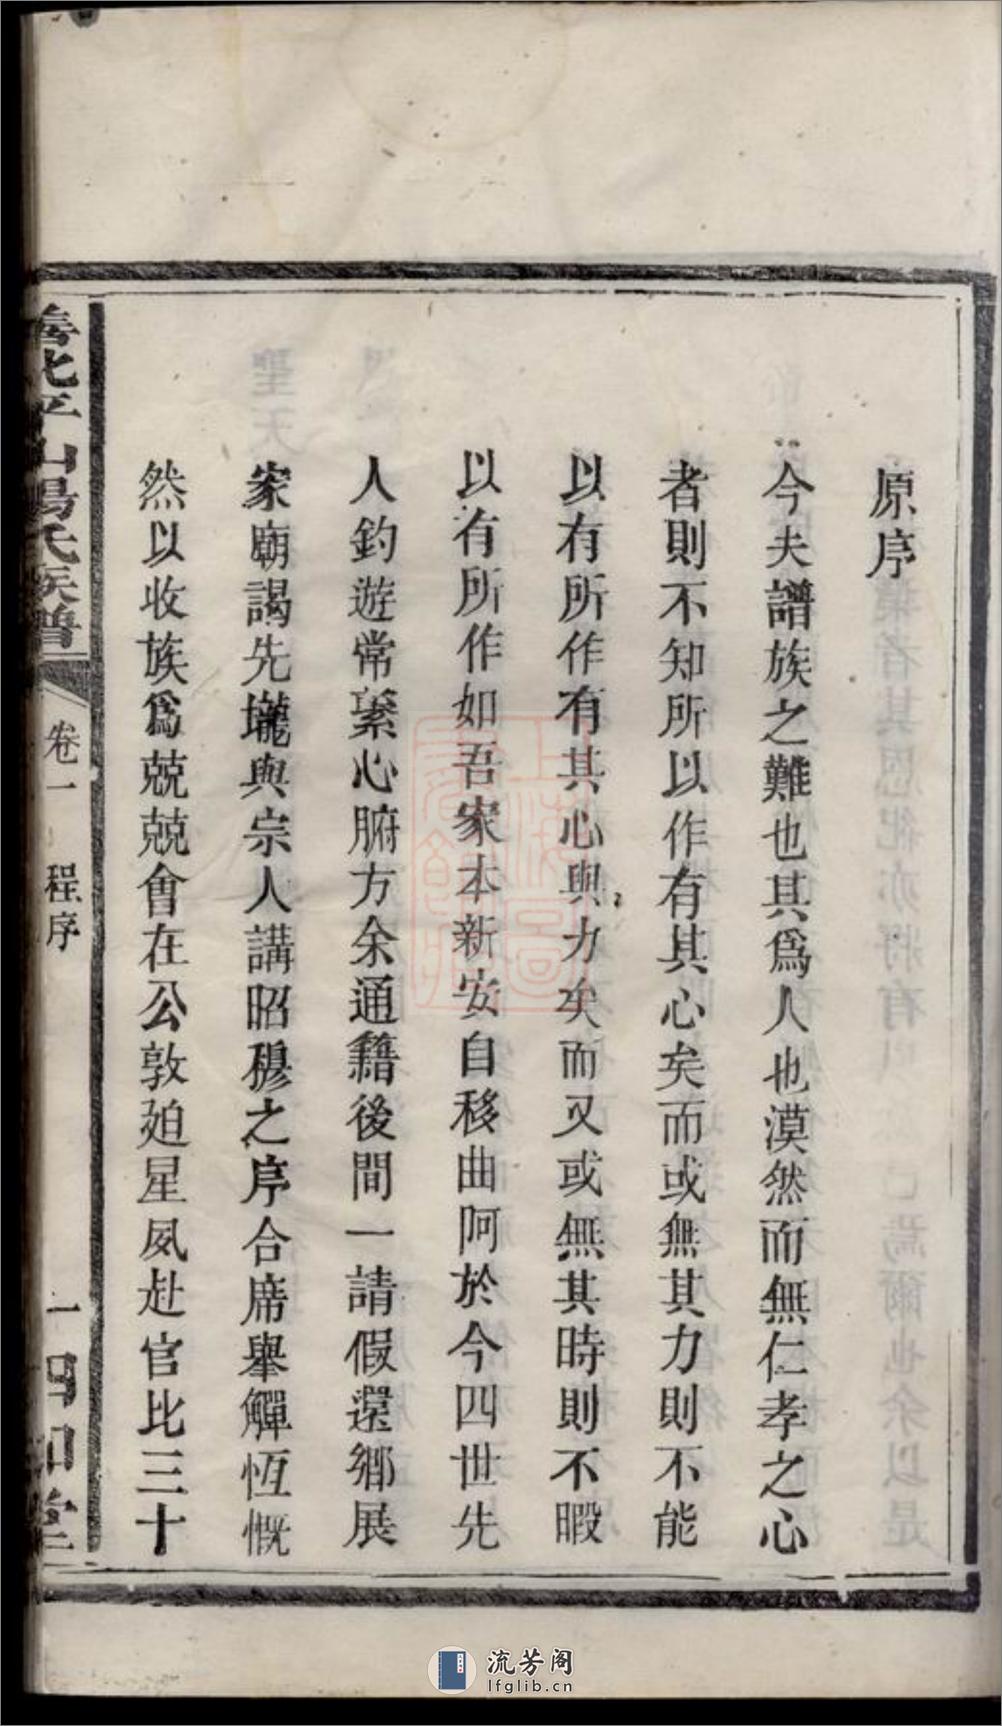 原序
今夫譜族之難也其爲人也漠然而無仁孝之心
者則不知所以作有其心矣而或無其力則不能
以有所作有其心與力矣而又或無其時則不暇
以有所作如吾家本新安自移曲阿於今四世先
人釣遊常縈心腑方余通籍後間一請假還鄉展
家廟謁先壠與宗人講昭穆之序合席舉觶恆慨
然以收族爲兢兢會在公敦廹星夙赴官比三十
平山湯氏族譜
卷一
程序
一
四知堂
流芳阁
lfglib.cn